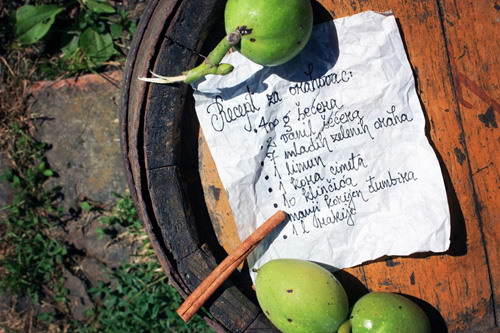 Recept za orahovac:
• 400 g šećera
• 2 vanil šećera
• 7 mladih zelenih oraha
• 1 limun
• 1 kora cimeta
• 10 klinčića
• manji korijen đumbira
• 1 l rakije